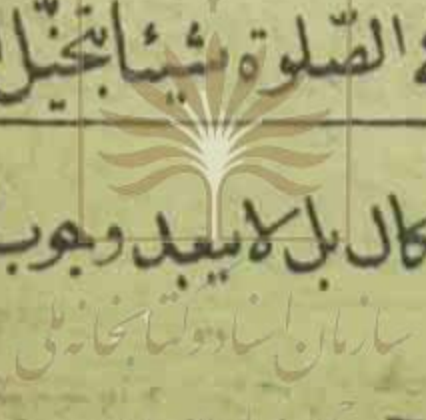 الصّلوة شيئا بتخيّل
كال بل لا يبعد وجوب
سازمان اسناد و کتابخانه ملی